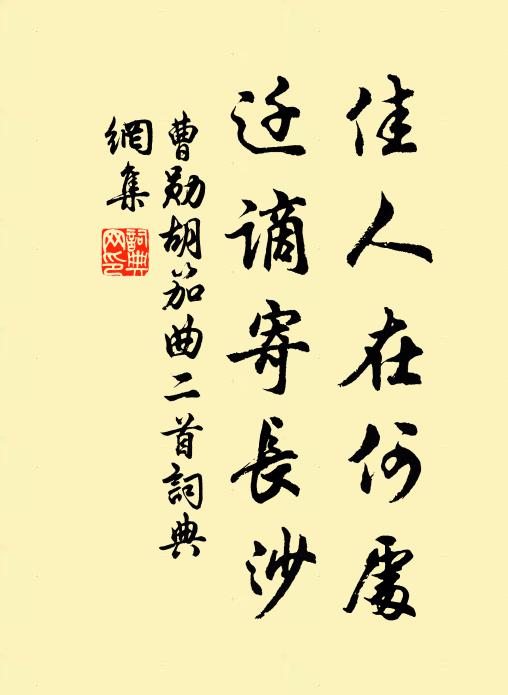 佳人在何處
迁謫寄長沙
曹勛胡笳曲二首詞典
網集
詞典
网印